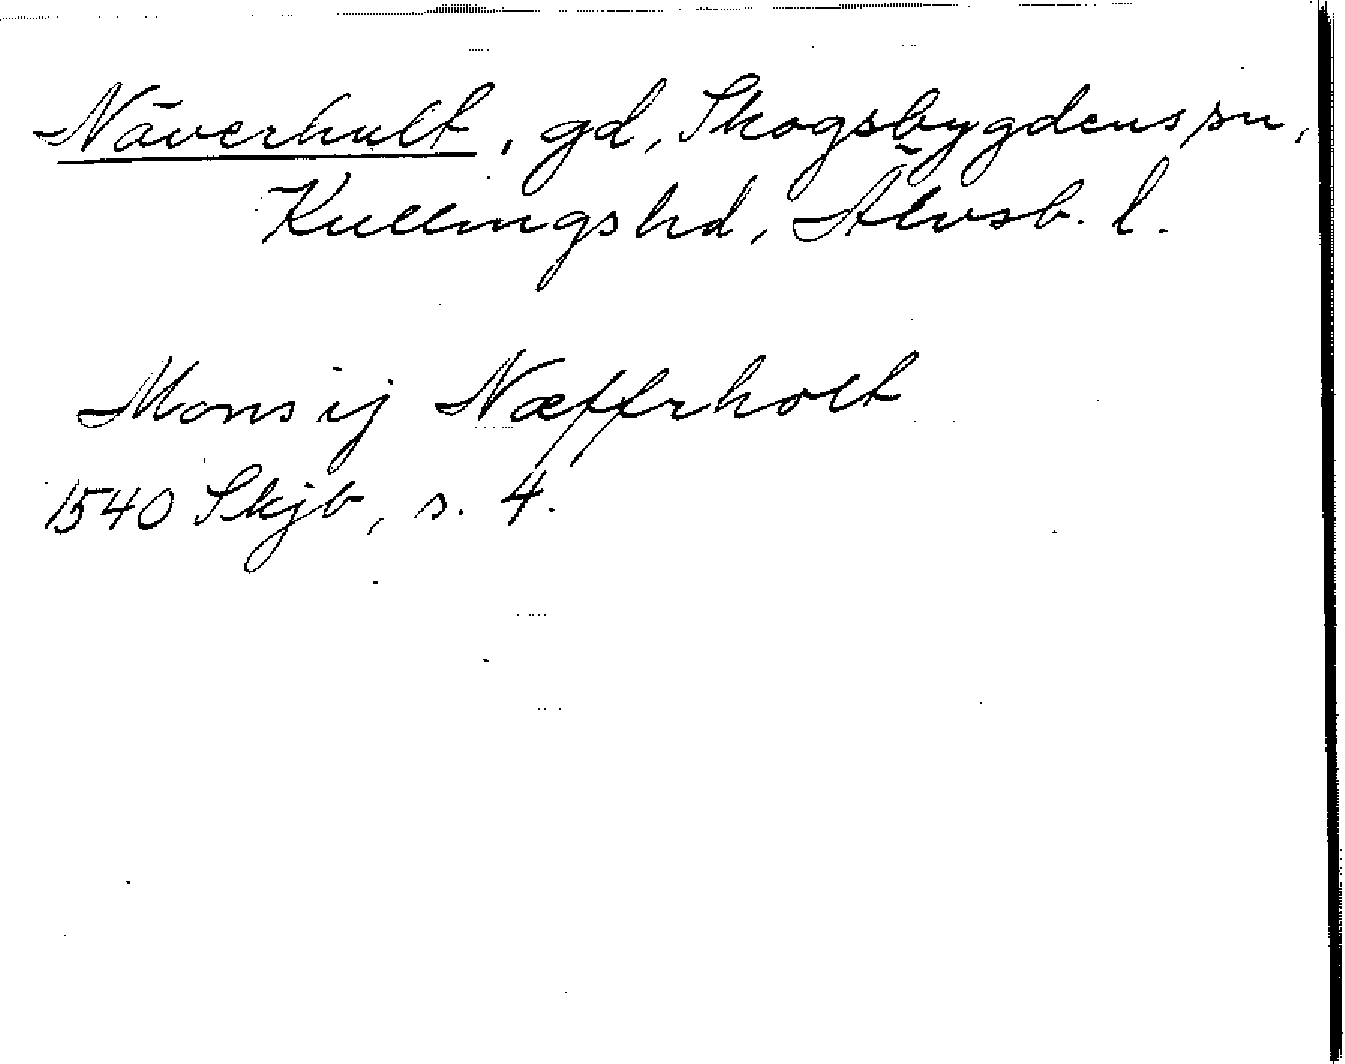 Näverhult, gd, Skogsbygdens sn,
Kullings hd, Älvsb. l.
Mons ij Næffrholt
1540 Skjb, s. 4.